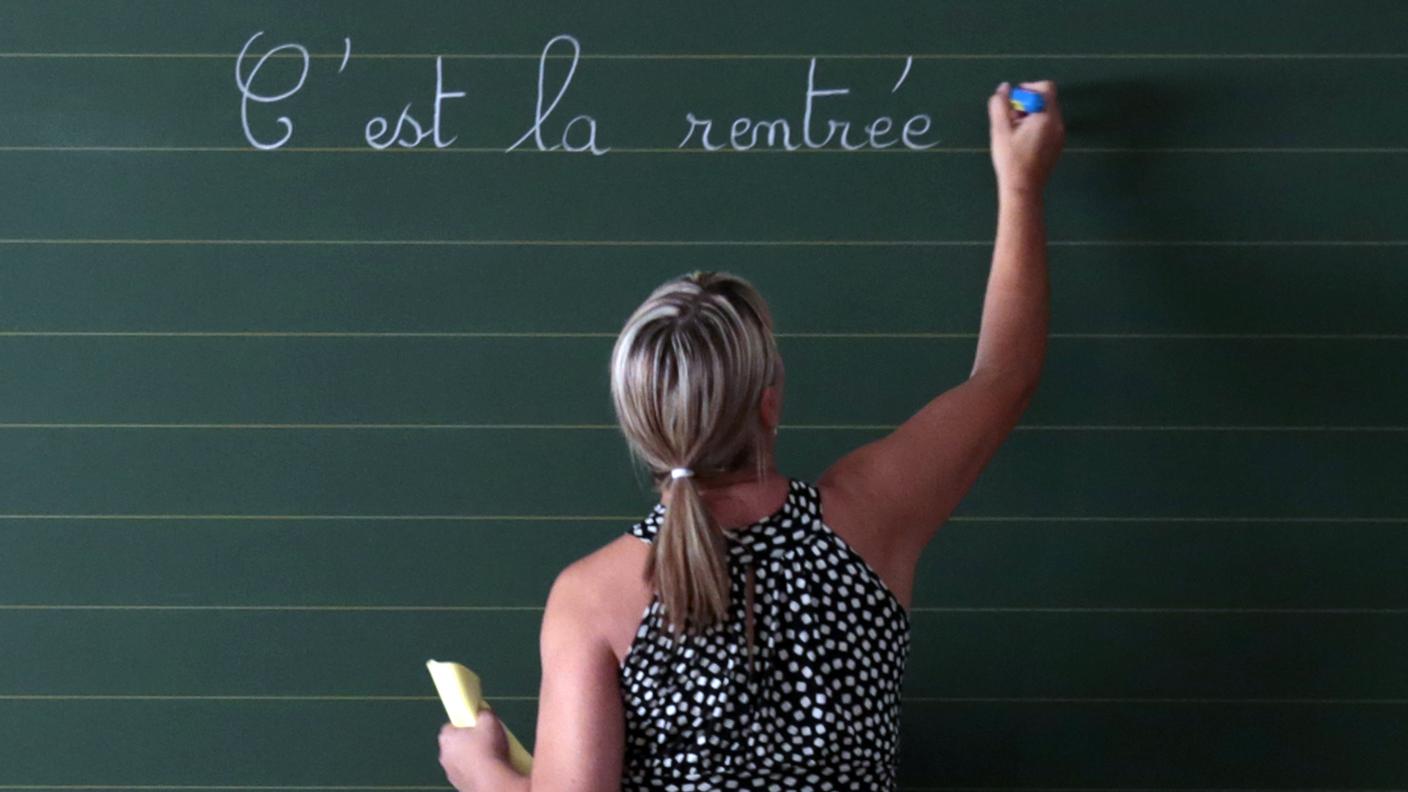 C'est la rentrée